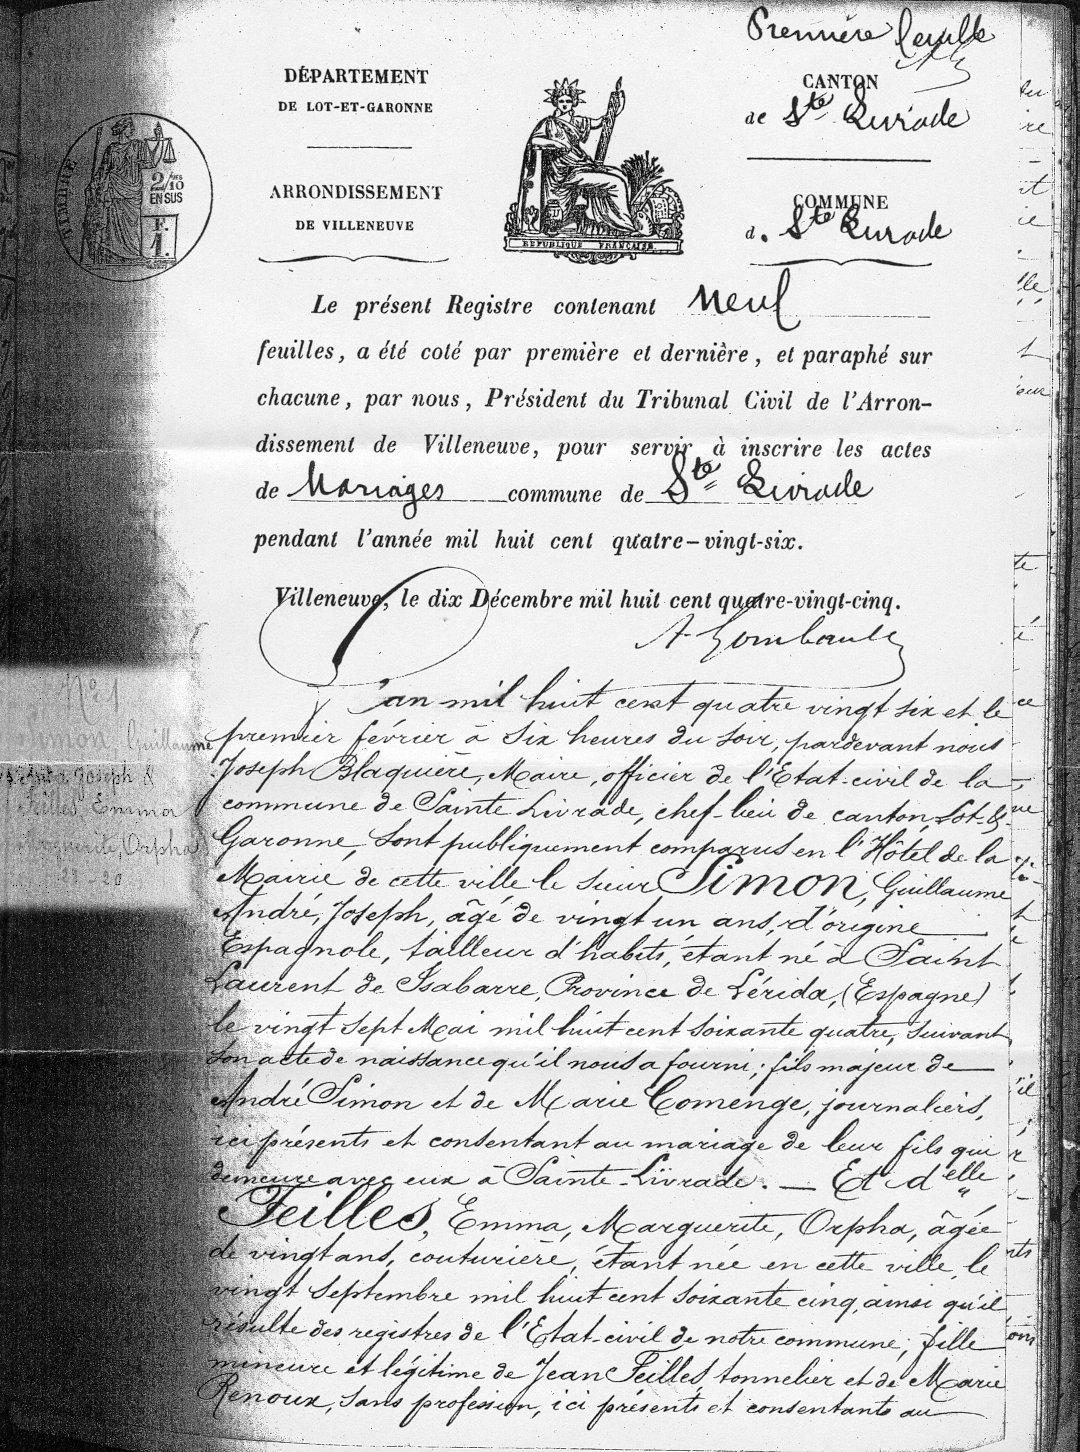 Première feuille
DÉPARTEMENT
DE LOT-ET-GARONNE
ARRONDISSEMENT
DE VILLENEUVE
TIMBRE
2/10
EN SUS
F.
1.
REPUBLIQUE FRANÇAISE
CANTON
de Ste Livrade
COMMUNE
d. Ste Livrade
Le présent Registre contenant Neuf
feuilles, a été coté par première et dernière, et paraphé sur
chacune, par nous, Président du Tribunal Civil de l'Arron-
dissement de Villeneuve, pour servir à inscrire les actes
de Mariages commune de Ste Livrade
pendant l'année mil huit cent quatre-vingt-six.
Villeneuve, le dix Décembre mil huit cent quatre-vingt-cinq.
No 1
Simon, Guillaume
André Joseph &
Feilles Emma
Marguerite, Orpha
L'an mil huit cent quatre vingt six et le
premier février à six heures du soir, pardevant nous
Joseph Blaquière, Maire, officier de l'Etat-civil de la
commune de Sainte Livrade, chef-lieu de canton, Lot &
Garonne, sont publiquement comparus en l'Hôtel de la
Mairie de cette ville le sieur Simon, Guillaume
André, Joseph, âgé de vingt un ans, d'origine
Espagnole, tailleur d'habits, étant né à Saint
Laurent de Isabarre, Province de Lérida, (Espagne)
le vingt sept Mai mil huit cent soixante quatre, suivant
son acte de naissance qu'il nous a fourni; fils majeur de
André Simon et de Marie Comenge, journaliers,
ici présents et consentant au mariage de leur fils qui
demeure avec eux à Sainte-Livrade. — Et delle
Feilles, Emma, Marguerite, Orpha, âgée
de vingt ans, couturière, étant née en cette ville, le
vingt septembre mil huit cent soixante cinq, ainsi qu'il
résulte des registres de l'Etat-civil de notre commune; fille
mineure et légitime de Jean Feilles tonnelier et de Marie
Renoux, sans profession, ici présents et consentants au